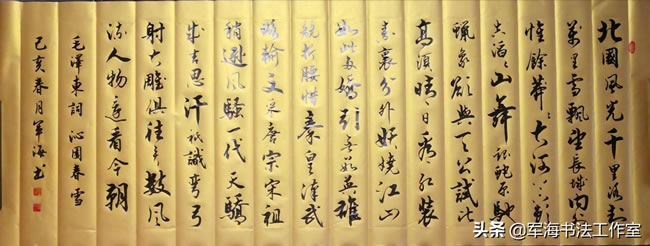 北國風光千里冰封
萬里雪飄望長城内外
惟餘莽々大河上下頓
失滔々山舞銀蛇原馳
蠟象欲與天公試比
高須晴日看紅裝
素裹分外妖嬈江山
如此多嬌引無數英雄
競折腰惜秦皇漢武
略輸文采唐宗宋祖
稍遜風騷一代天驕
成吉思汗祇識彎弓
射大雕俱往矣數風
流人物還看今朝
毛澤東詞 沁園春 雪
己亥春月軍海書
头条 @军海书法工作室